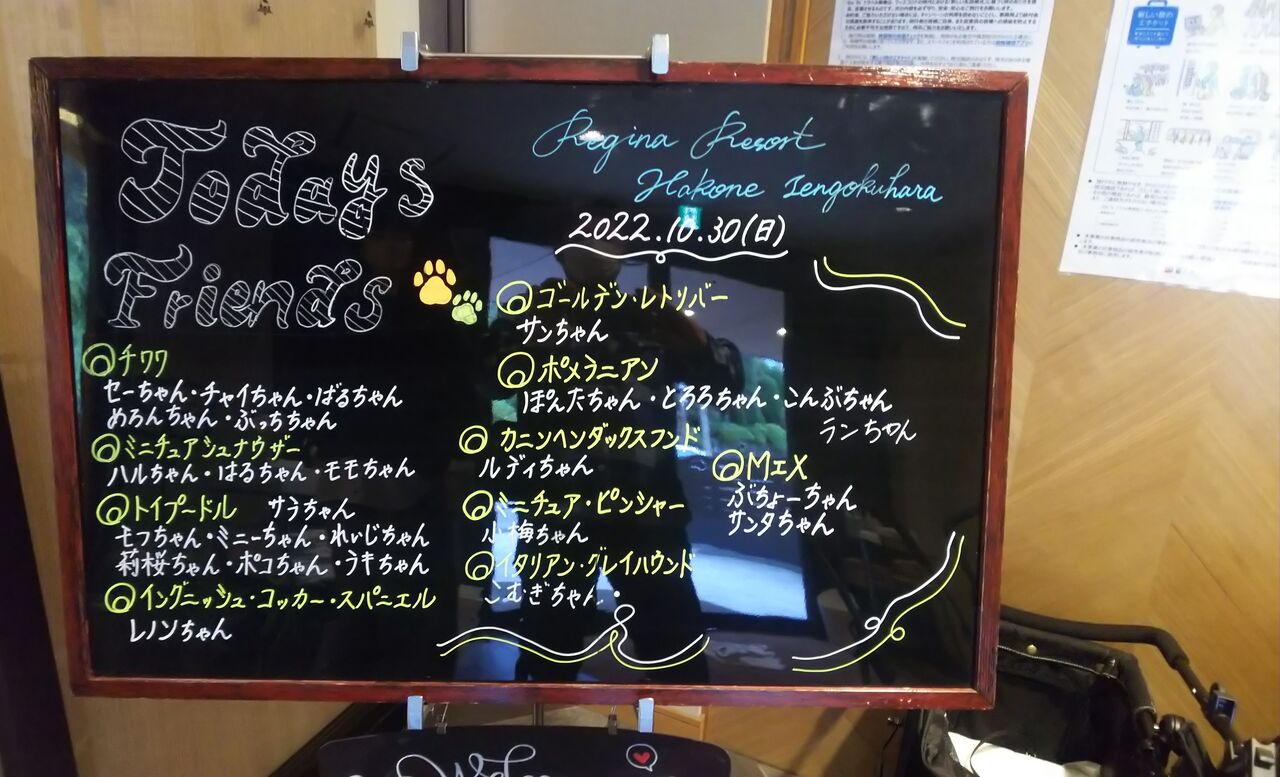 Todays
Friends
Regina Resort
Hakone Sengokuhara
2022.10.30(日)
チワワ
セーちゃん・チャイちゃん・ばるちゃん
めろんちゃん・ぶっちちゃん
ミニチュアシュナウザー
ハルちゃん・はるちゃん・モモちゃん
トイプードル サうちゃん
モフちゃん・ミニーちゃん・れいじちゃん
莉桜ちゃん・ポコちゃん・うキちゃん
イングニッシュ・コッカー・スパニエル
レノンちゃん
ゴールデン・レトリバー
サンちゃん
ポメラニアン
ぽんたちゃん・とろろちゃん・こんぶちゃん
ランちゃん
カニンヘンダックスフンド
ルディちゃん
ミニチュア・ピンシャー
小梅ちゃん
イタリアン・グレイハウンド
こむぎちゃん・
MIX
ぶちょーちゃん
サンタちゃん
新しい旅の
エチケット